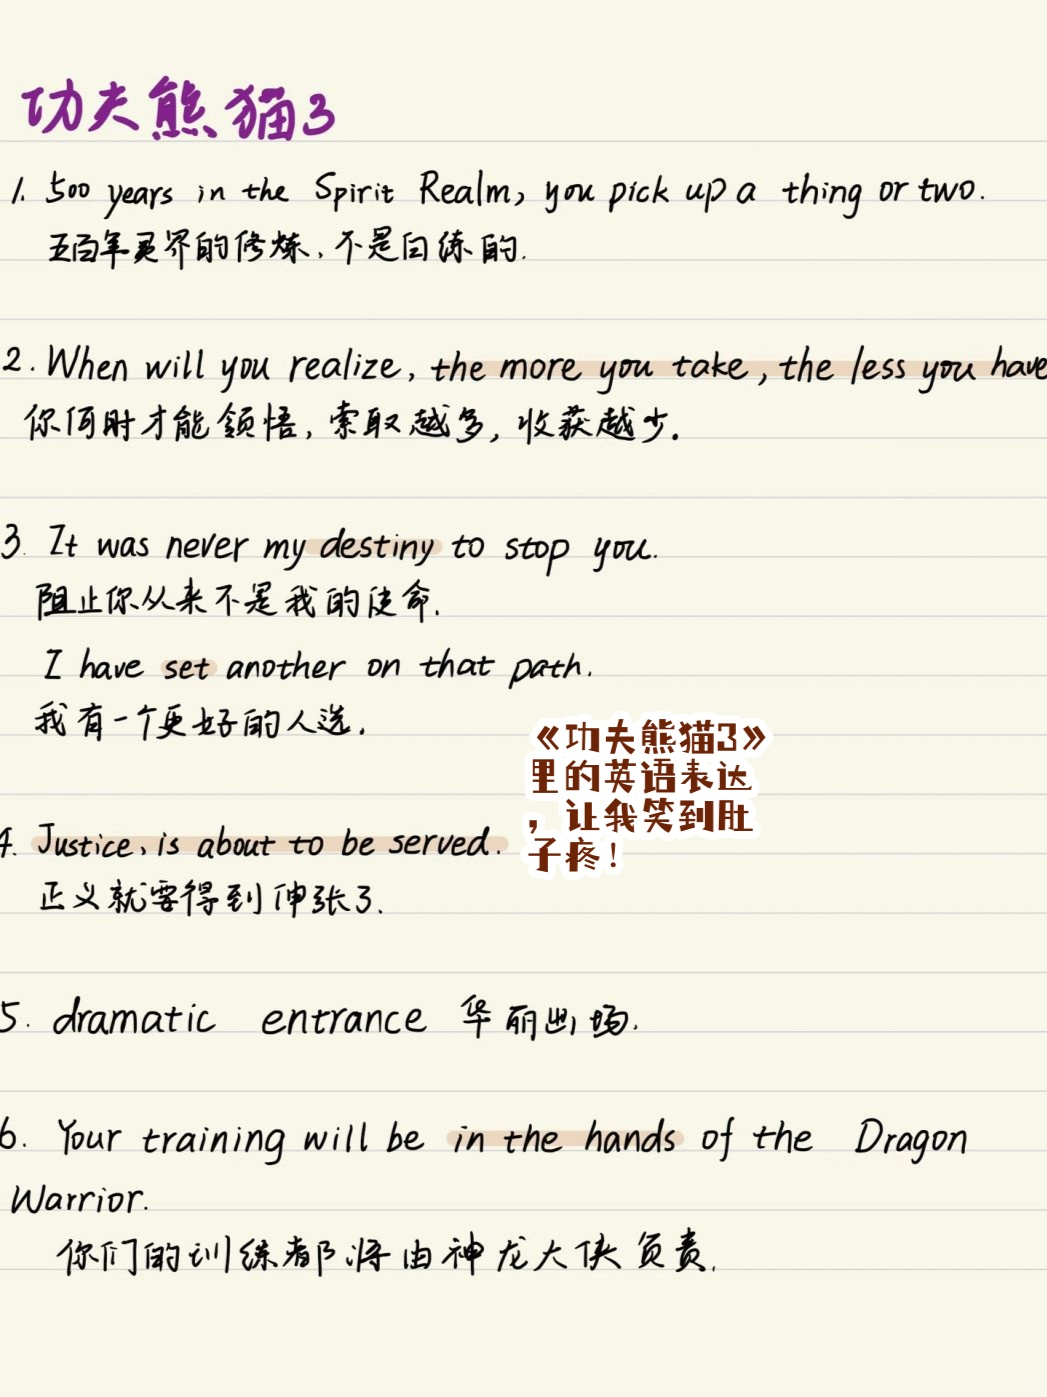 功夫熊猫3
1. 500 years in the Spirit Realm, you pick up a thing or two.
五百年灵界的修炼,不是白练的.
2. When will you realize, the more you take, the less you have
你何时才能领悟,索取越多,收获越少.
3. It was never my destiny to stop you.
阻止你从来不是我的使命.
I have set another on that path.
我有一个更好的人选.
《功夫熊猫3》
里的英语表达
,让我笑到肚
子疼!
4. Justice, is about to be served.
正义就要得到伸张了.
5. dramatic entrance 华丽出场.
6. Your training will be in the hands of the Dragon
Warrior.
你们的训练都将由神龙大侠负责.